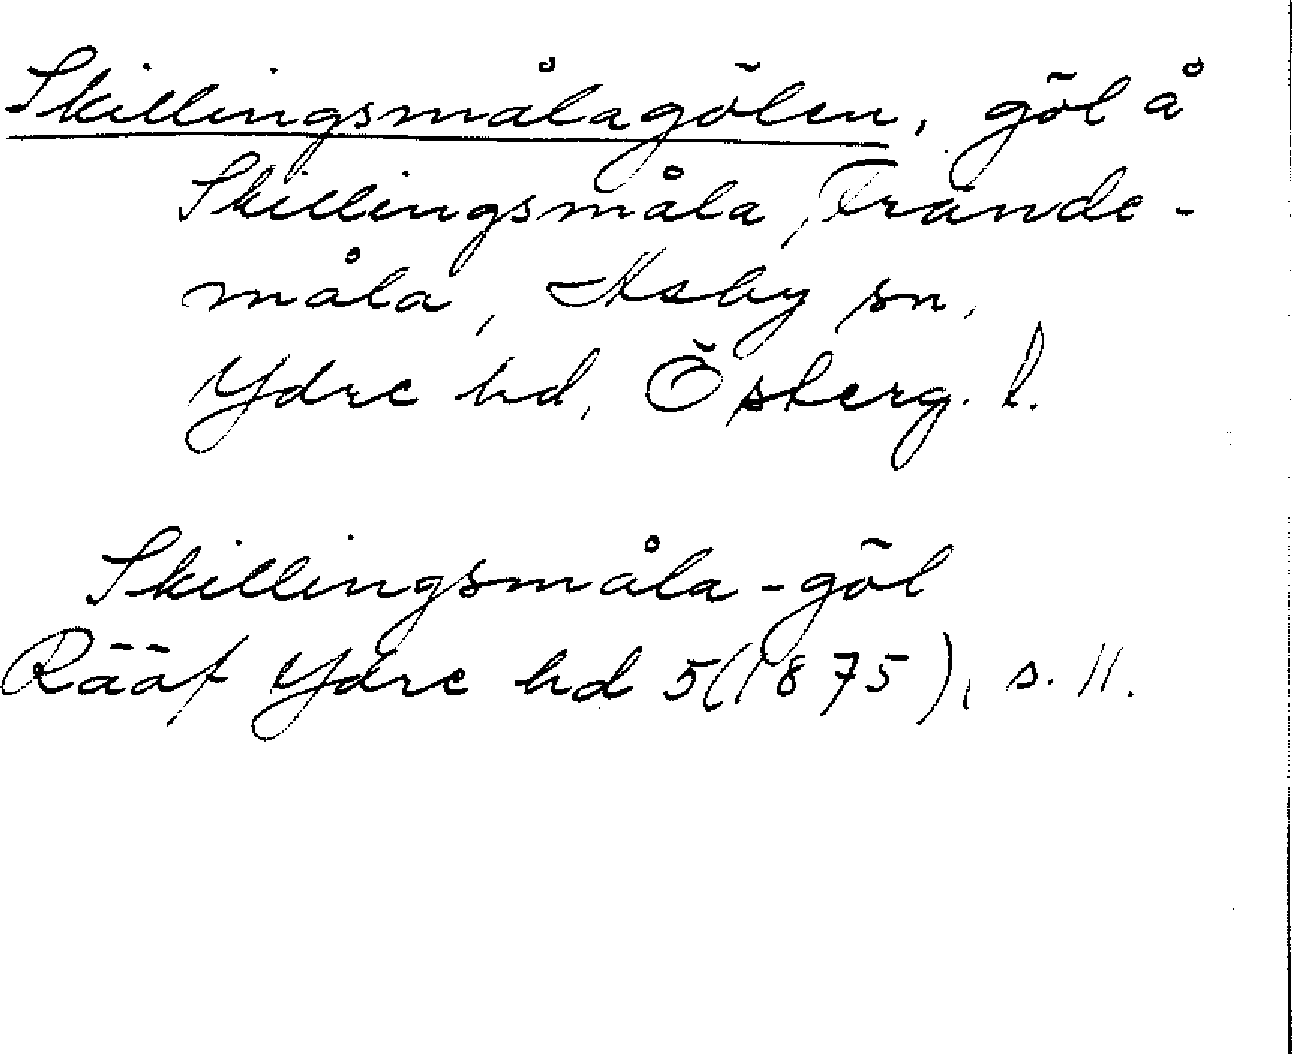 Skillingsmålagölen, göl å
Skillingsmåla, Frände-
måla, Asby sn,
Ydre hd, Österg. l.
Skillingsmåla-göl
Rääf Ydre hd 5(1875), s. 11.